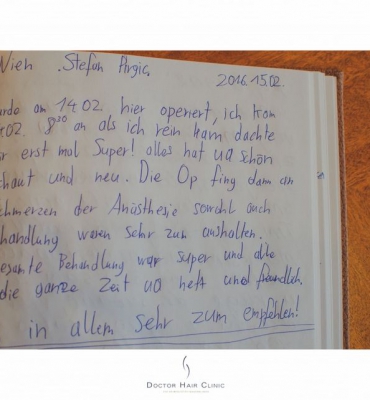 Wien Stefan Argic
2016.15.02.
urde am 14.02. hier operiert, ich kom
.02. 8³⁰ an als ich rein kam dachte
r erst mal Super! alles hat ua schön
chaut und neu. Die Op fing dann an
chmerzen der Anästhesie sowohl auch
handlung waren sehr zum aushalten.
esamte Behandlung war super und alle
die ganze Zeit ua nett und freundlich.
in allem sehr zum empfehlen!
DOCTOR HAIR CLINIC